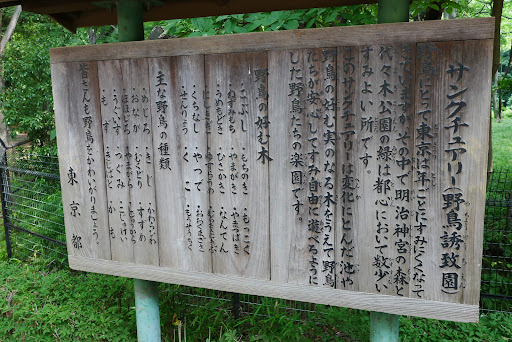 サンクチュアリー(野鳥誘致園)
野鳥にとって東京は年ごとにすみにくくなって
来ていますが、その中で明治神宮の森と
代々木公園の緑は都心において数少い
すみよい所です。
このサンクチュアリーは変化にとんだ池や
野鳥の好む実のなる木をうえて野鳥
たちが安心してすみ自由に遊べるように
した野鳥たちの楽園です。
野鳥の好む木
・こぶし ・もちのき ・もっこく
・ねずみもち
・うめもどき ・ひさかき ・なんてん
・にしきぎ
・くちなし ・やつで ・おおむらさき
・せんりょう ・くこ ・もうそうちく
主な野鳥の種類
・めじろ ・きじ ・かわらひわ
・おなが ・むくどり ・すずめ
・ほほじろ ・ひよどり
・うぐいす ・つぐみ ・こじゅけい
・もず ・きじばと ・かも
皆さんも野鳥をかわいがりましょう。
東京都